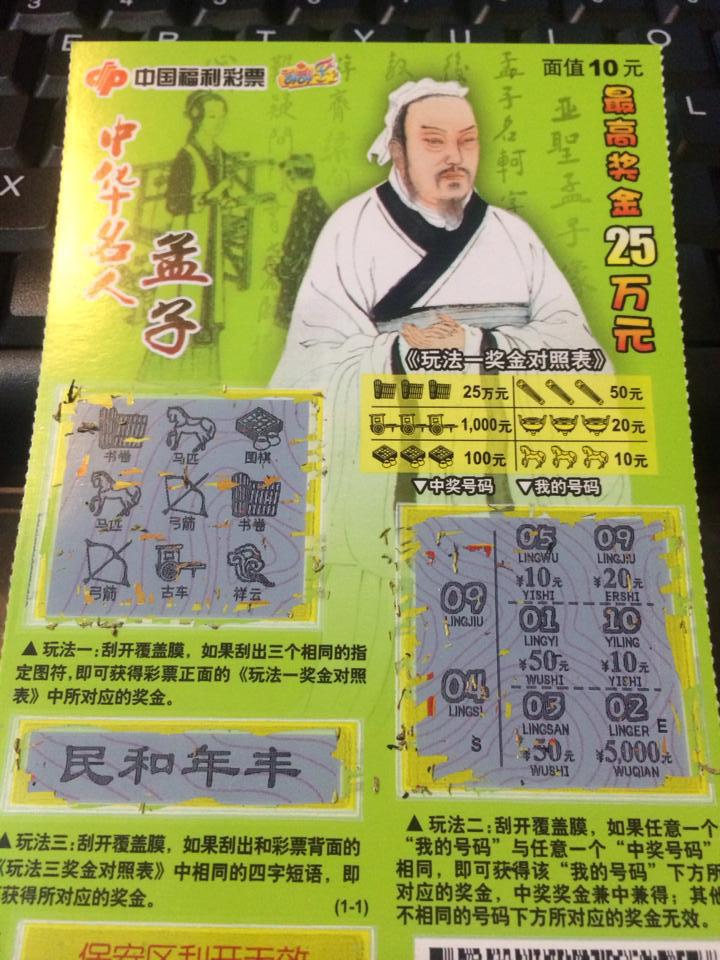 E R T Y U I O
X
L
中国福利彩票
面值10元
最高奖金25万元
中华名人
孟子
亚聖孟子
孟子名軻
《玩法一奖金对照表》
25万元 50元
1,000元 20元
100元 10元
▼中奖号码 ▼我的号码
书卷 马匹 围棋
马匹 弓箭 书卷
弓箭 古车 祥云
09
LINGJIU
04
LINGSI
S
05 09
LINGWU LINGJIU
¥10元 ¥20元
YISHI ERSHI
01 10
LINGYI YILING
¥50元 ¥10元
WUSHI YISHI
03 02
LINGSAN LINGER E
¥50元 ¥5,000元
WUSHI WUQIAN
▲玩法一:刮开覆盖膜，如果刮出三个相同的指
定图符,即可获得彩票正面的《玩法一奖金对照
表》中所对应的奖金。
民和年丰
▲玩法三:刮开覆盖膜，如果刮出和彩票背面的
《玩法三奖金对照表》中相同的四字短语，即
可获得所对应的奖金。
(1-1)
▲玩法二:刮开覆盖膜，如果任意一个
“我的号码”与任意一个“中奖号码”
相同，即可获得该“我的号码”下方所
对应的奖金，中奖奖金兼中兼得；其他
不相同的号码下方所对应的奖金无效。
保安区刮开无效